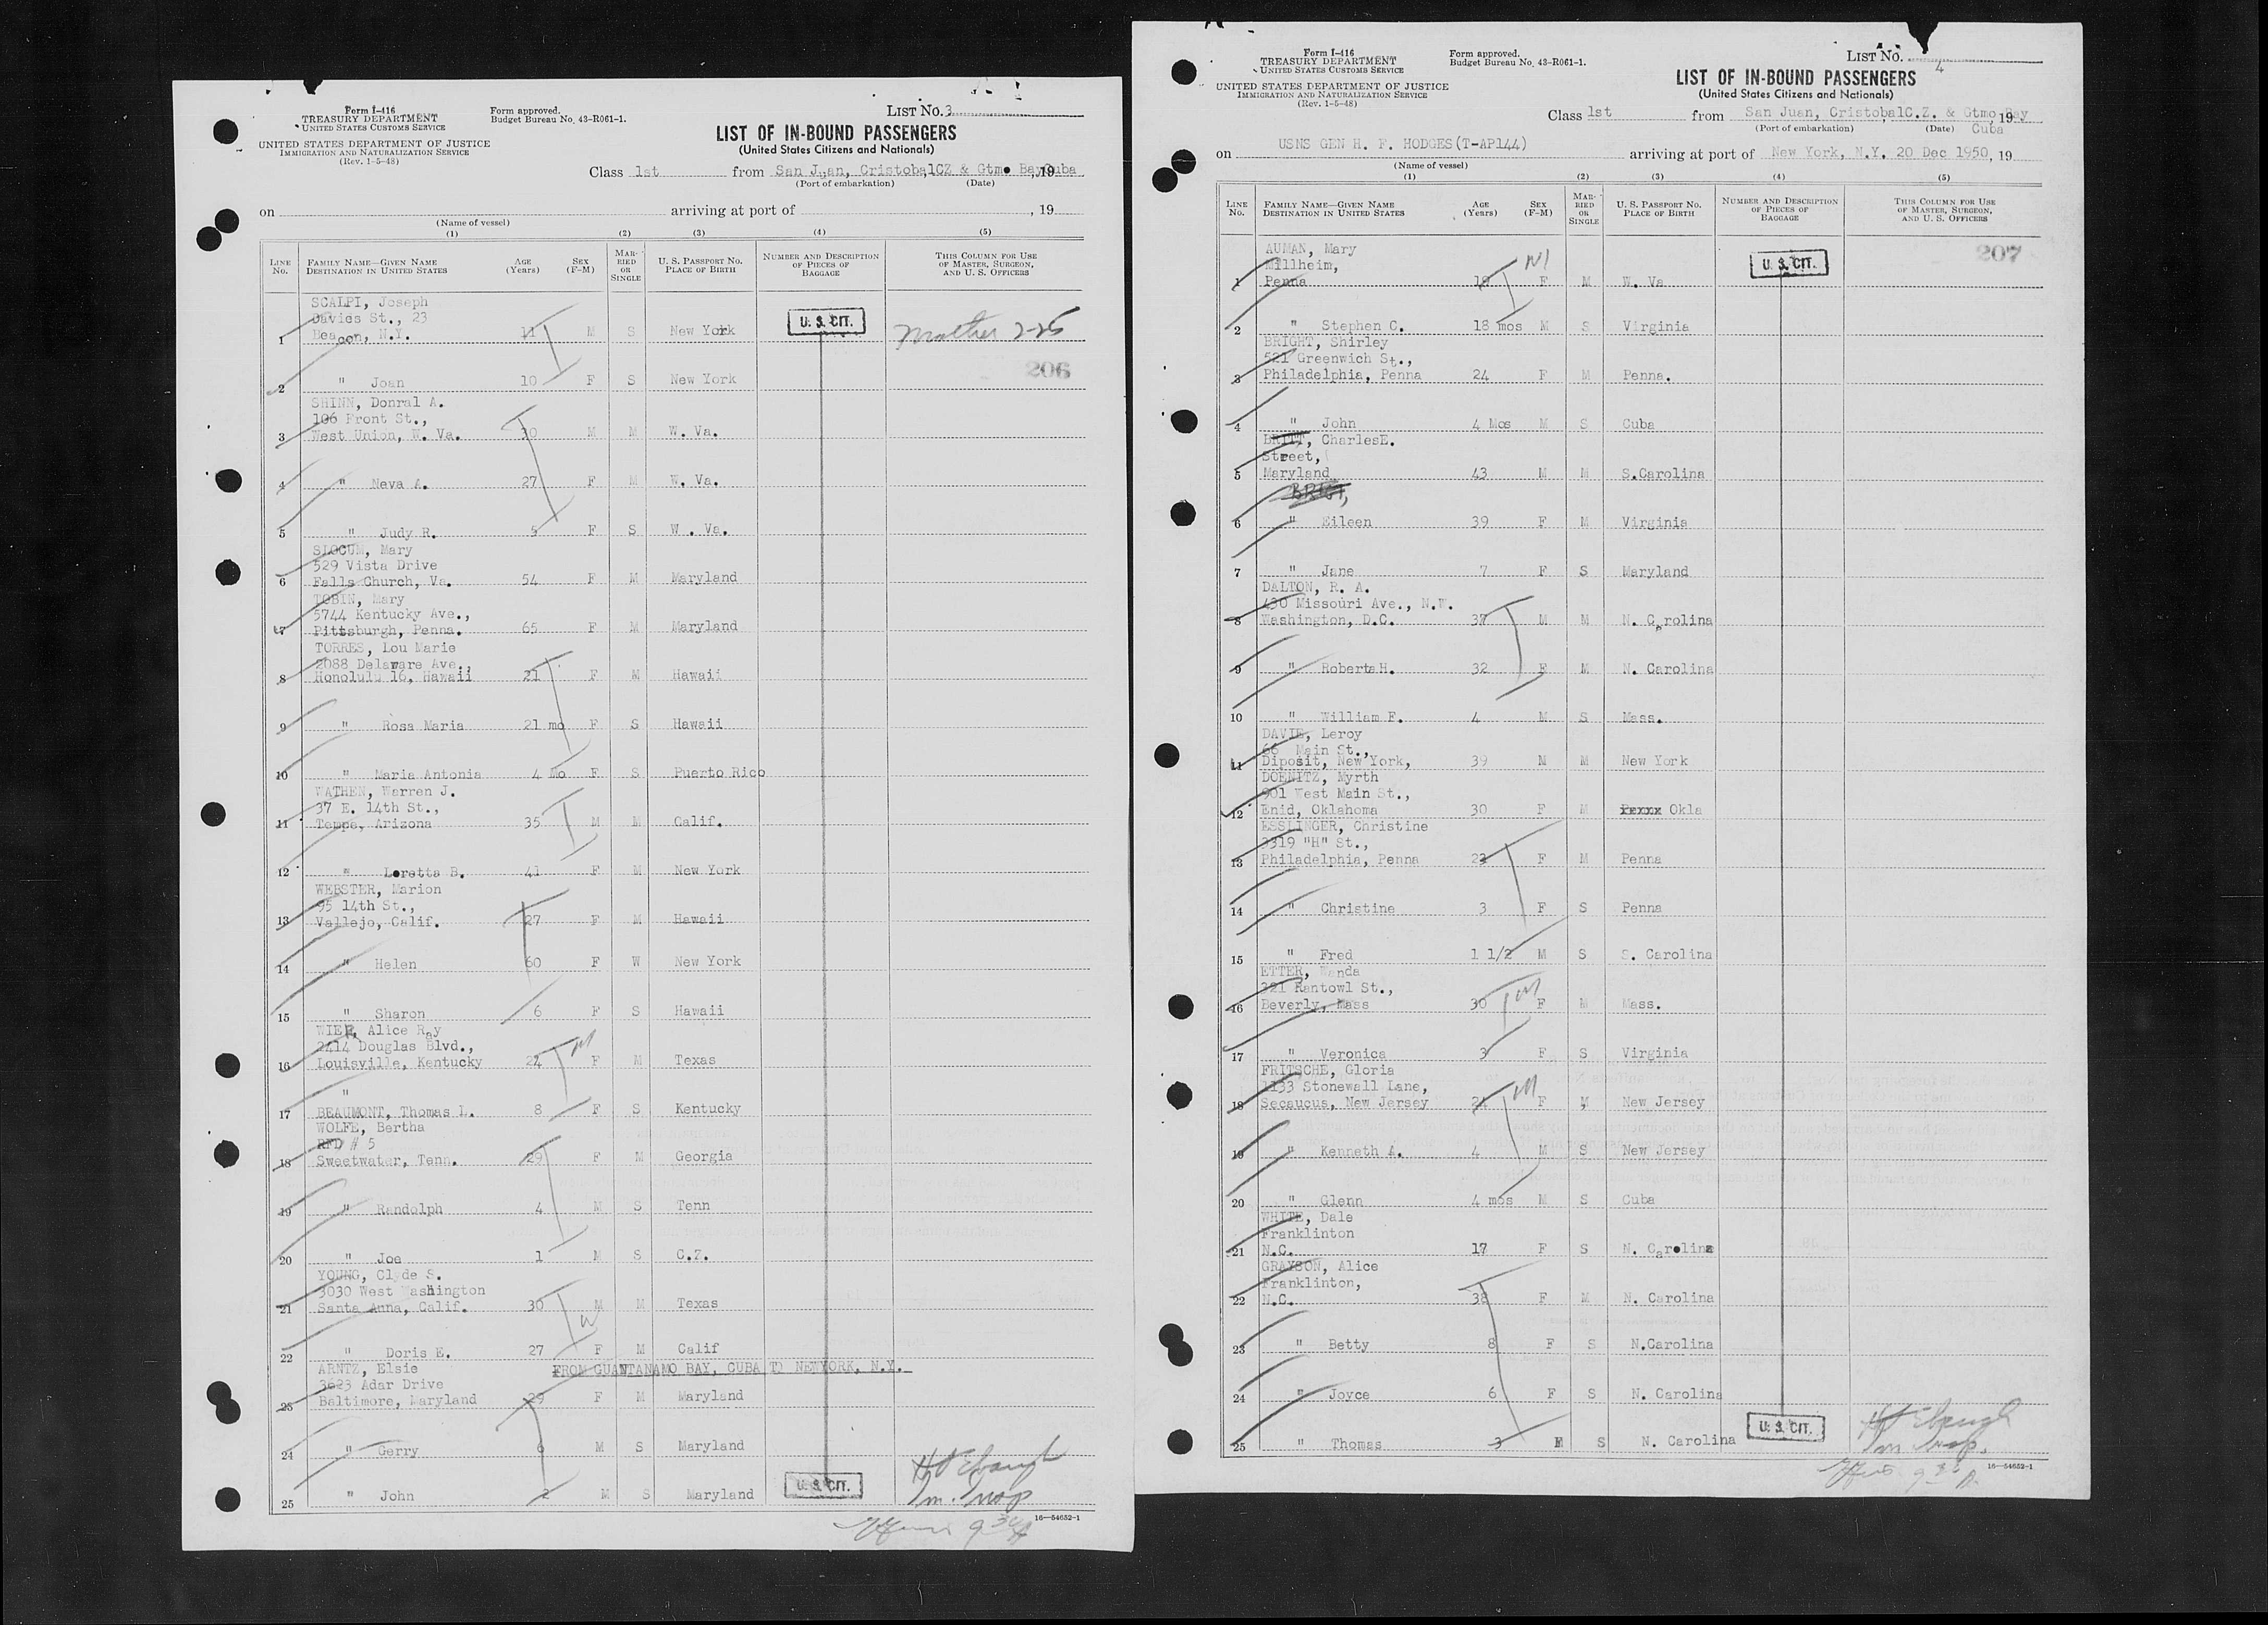 Form I-416
TREASURY DEPARTMENT
UNITED STATES CUSTOMS SERVICE
UNITED STATES DEPARTMENT OF JUSTICE
IMMIGRATION AND NATURALIZATION SERVICE
(Rev. 1-5-48)
Form approved.
Budget Bureau No. 43-R061-1.
LIST No. 3
LIST OF IN-BOUND PASSENGERS
(United States Citizens and Nationals)
Class 1st from San Juan, CristobalCZ & Gtmo BayCuba, 19
(Port of embarkation) (Date)
on arriving at port of , 19
(Name of vessel)
(1) (2) (3) (4) (5)
LINE No. FAMILY NAME—GIVEN NAME DESTINATION IN UNITED STATES AGE (Years) SEX (F-M) MARRIED OR SINGLE U. S. PASSPORT NO. PLACE OF BIRTH NUMBER AND DESCRIPTION OF PIECES OF BAGGAGE THIS COLUMN FOR USE OF MASTER, SURGEON, AND U. S. OFFICERS
SCALPI, Joseph
Davies St., 23
1 Beacon, N.Y. 11 M S New York U. S. CIT. Mother 2-25
206
2 " Joan 10 F S New York
SHINN, Donral A.
106 Front St.,
3 West Union, W. Va. 30 M M W. Va.
4 " Neva A. 27 F M W. Va.
5 " Judy R. 5 F S W . Va.
SLOCUM, Mary
529 Vista Drive
6 Falls Church, Va. 54 F M Maryland
TOBIN, Mary
5744 Kentucky Ave.,
7 Pittsburgh, Penna. 65 F M Maryland
TORRES, Lou Marie
2088 Delaware Ave.,
8 Honolulu 16, Hawaii 21 F M Hawaii
9 " Rosa Maria 21 mo F S Hawaii
10 " Maria Antonia 4 Mo F S Puerto Rico
WATHEN, Warren J.
37 E. 14th St.,
11 Tempe, Arizona 35 M M Calif.
12 " Loretta B. 41 F M New York
WEBSTER, Marion
95 14th St.,
13 Vallejo, Calif. 27 F M Hawaii
14 " Helen 60 F W New York
15 " Sharon 6 F S Hawaii
WIER, Alice Ray
2414 Douglas Blvd.,
16 Louisville, Kentucky 24 F M Texas
"
17 BEAUMONT, Thomas L. 8 F S Kentucky
WOLFE, Bertha
RFD # 5
18 Sweetwater, Tenn. 29 F M Georgia
19 " Randolph 4 M S Tenn
20 " Joe 1 M S C.Z.
YOUNG, Clyde S.
3030 West Washington
21 Santa Anna, Calif. 30 M M Texas
22 " Doris E. 27 F M Calif
FROM GUANTANAMO BAY, CUBA TO NEWYORK, N.Y.
ARNTZ, Elsie
3623 Adar Drive
23 Baltimore, Maryland 29 F M Maryland
24 " Gerry 6 M S Maryland
25 " John 2 M S Maryland U. S. CIT.
16—54652-1
Form I-416
TREASURY DEPARTMENT
UNITED STATES CUSTOMS SERVICE
UNITED STATES DEPARTMENT OF JUSTICE
IMMIGRATION AND NATURALIZATION SERVICE
(Rev. 1-5-48)
Form approved.
Budget Bureau No. 43-R061-1.
LIST No. 4
LIST OF IN-BOUND PASSENGERS
(United States Citizens and Nationals)
Class 1st from San Juan, CristobalC.Z. & Gtmo Bay, 19
(Port of embarkation) (Date) Cuba
on USNS GEN H. F. HODGES(T-AP144) arriving at port of New York, N.Y. 20 Dec 1950, 19
(Name of vessel)
(1) (2) (3) (4) (5)
LINE No. FAMILY NAME—GIVEN NAME DESTINATION IN UNITED STATES AGE (Years) SEX (F-M) MARRIED OR SINGLE U. S. PASSPORT NO. PLACE OF BIRTH NUMBER AND DESCRIPTION OF PIECES OF BAGGAGE THIS COLUMN FOR USE OF MASTER, SURGEON, AND U. S. OFFICERS
207
AUMAN, Mary
Millheim,
1 Penna 19 F M W. Va U. S. CIT.
2 " Stephen C. 18 mos M S Virginia
BRIGHT, Shirley
521 Greenwich St.,
3 Philadelphia, Penna 24 F M Penna.
4 " John 4 Mos M S Cuba
BRITT, CharlesE.
Street,
5 Maryland 43 M M S.Carolina
6 " Eileen 39 F M Virginia
7 " Jane 7 F S Maryland
DALTON, R. A.
430 Missouri Ave., N.W.
8 Washington, D.C. 37 M M N. Carolina
9 " RobertaH. 32 F M N. Carolina
10 " William F. 4 M S Mass.
DAVIS, Leroy
66 Main St.,
11 Diposit, New York, 39 M M New York
DOENITZ, Myrth
901 West Main St.,
12 Enid, Oklahoma 30 F M Okla
ESSLINGER, Christine
3319 "H" St.,
13 Philadelphia, Penna 23 F M Penna
14 " Christine 3 F S Penna
15 " Fred 1 1/2 M S S. Carolina
ETTER, Wanda
321 Rantowl St.,
16 Beverly, Mass 30 F M Mass.
17 " Veronica 3 F S Virginia
FRITSCHE, Gloria
1133 Stonewall Lane,
18 Secaucus, New Jersey 24 F M New Jersey
19 " Kenneth A. 4 M S New Jersey
20 " Glenn 4 mos M S Cuba
WHITE, Dale
Franklinton
21 N.C. 17 F S N. Carolina
GRAYSON, Alice
Franklinton,
22 N.C. 38 F M N. Carolina
23 " Betty 8 F S N.Carolina
24 " Joyce 6 F S N. Carolina
25 " Thomas 3 M S N. Carolina U. S. CIT.
16—54652-1